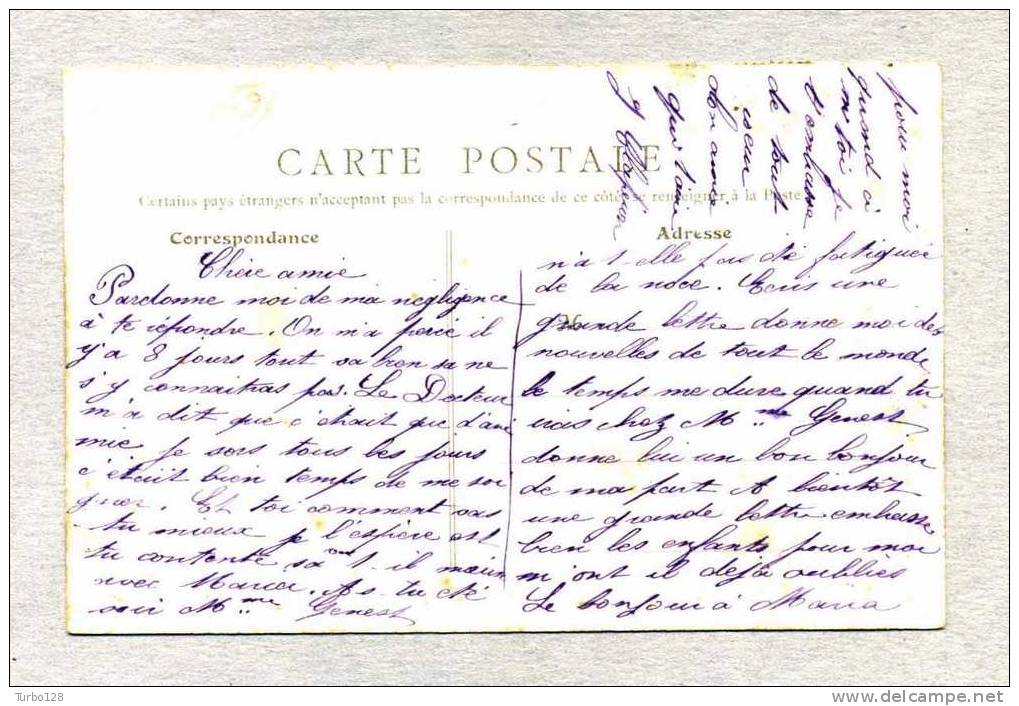 CARTE POSTALE
Certains pays étrangers n'acceptant pas la correspondance de ce côté, se renseigner à la Poste
Correspondance
Adresse
Chère amie
Pardonne moi de ma négligence
à te répondre. On m'a percé il
y'a 8 jours tout va bien sa ne
s'y connaitras pas. Le Docteur
m'a dit que c'était que d'ané
mie je sors tous les jours
c'était bien temps de me soi
gner. Et toi comment vas
tu mieux je l'espère est
tu contente sa t-il
avec Maria. As-tu été
voir Mme Genest
n'a t-elle pas été fatiguée
de la noce. Ecris une
grande lettre donne moi des
nouvelles de tout le monde
le temps me dure quand tu
iras chez Mme Genest
donne lui un bon bonjour
de ma part A bientôt
une grande lettre embrasse
bien les enfants pour moi
m'ont il déjà oubliés
Le bonjour à Maria
pour moi
quand à
toi je
t'embrasse
de tout
cœur
ton amie
qui t'aime
Turbo128
www.delcampe.net